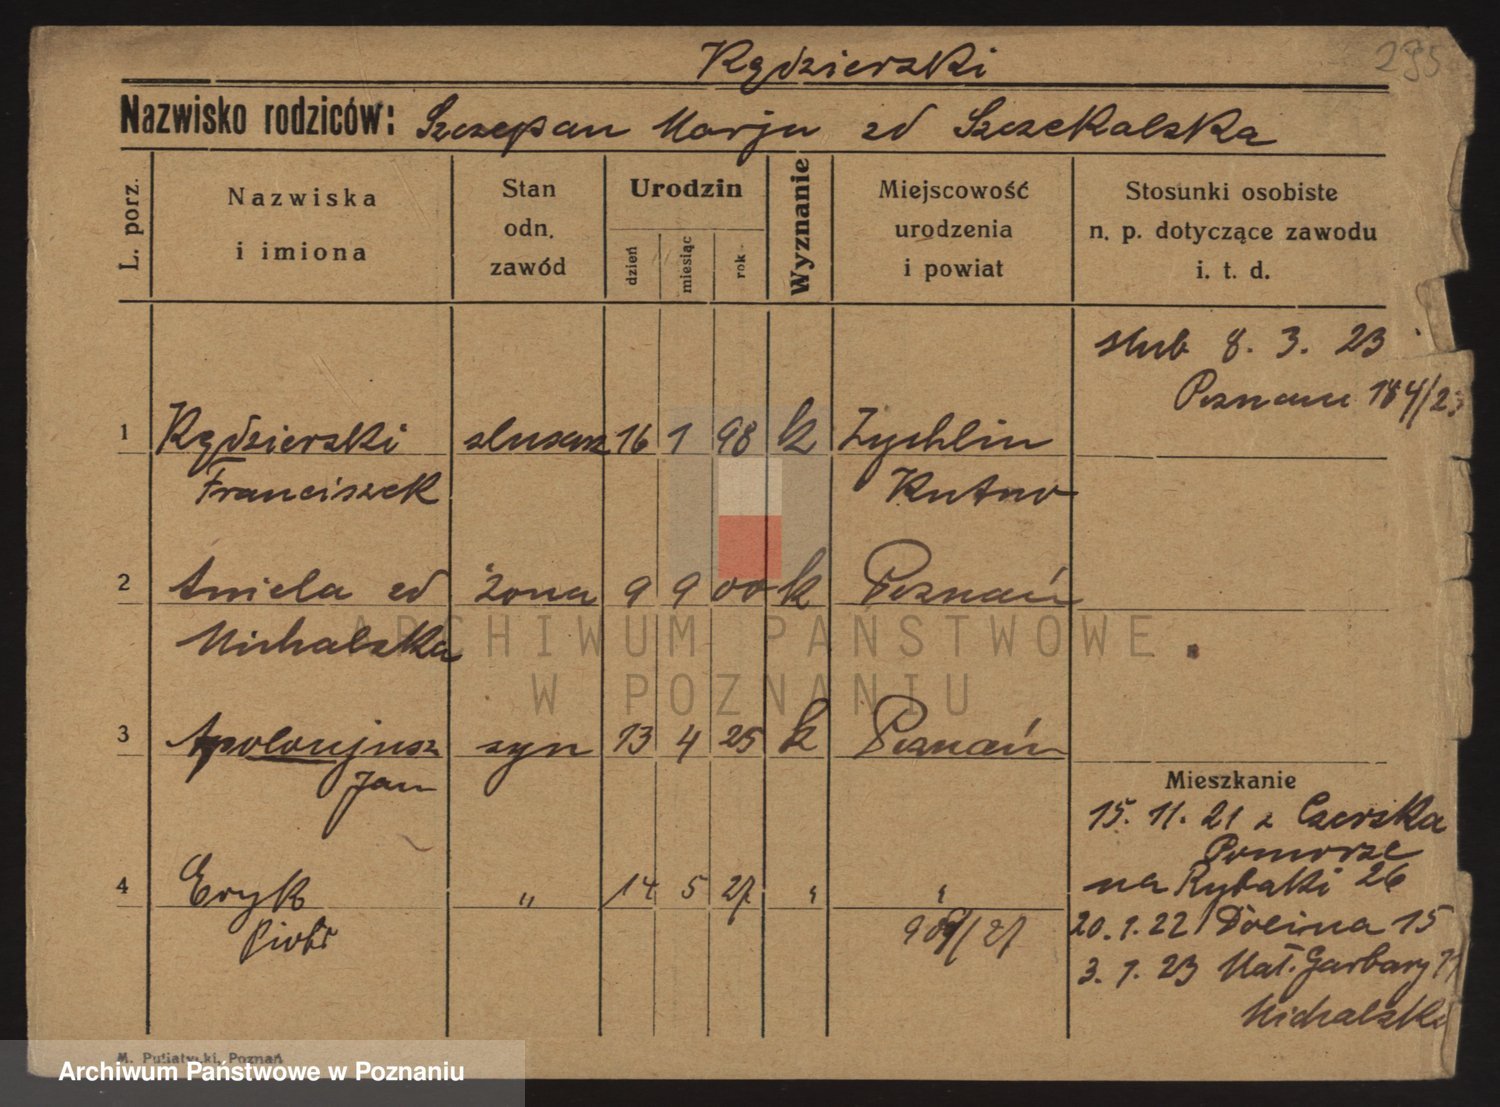 295
Kędzierski
Nazwisko rodziców: Szczepan Marja zd Szczekalska
L. porz.
Nazwiska i imiona
Stan odn. zawód
Urodzin
dzień
miesiąc
rok
Wyznanie
Miejscowość urodzenia i powiat
Stosunki osobiste n. p. dotyczące zawodu i. t. d.
ślub 8. 3. 23
Poznań 184/23
1 Kędzierski ślusarz 16 1 98 k Zychlin
Franciszek Kutno
2 Aniela zd żona 9 9 00 k Poznań
Michalska
3 Apolonjusz syn 13 4 25 k Poznań
Jan
Mieszkanie
15. 11. 21 z Czerska
Pomorze
na Rybaki 26
4 Eryk " 14 5 27 " "
Piotr
20. 1. 22 Dolina 15
3. 1. 23 Mał. Garbary
Michalska
M. Putiatycki, Poznań
ARCHIWUM PAŃSTWOWE
W POZNANIU
Archiwum Państwowe w Poznaniu